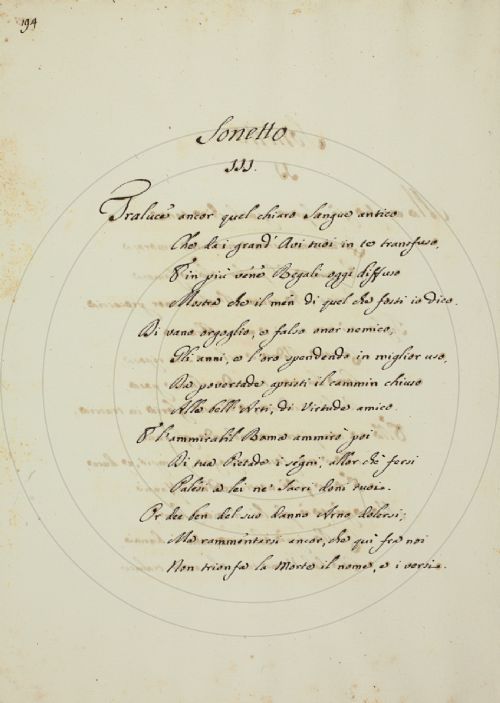 194
Sonetto
III.
Traluce ancor quel chiaro Sangue antico
Che da i grand' Avi tuoi in te transfuso,
E in più vene Regali oggi diffuso
Mostra che il men di quel che fosti io dico.
Di vano orgoglio, e falso onor nemico,
Gli anni, e l'oro spendendo in miglior uso,
Da povertade apristi il cammin chiuso
Alle bell' Arti, di Virtude amico.
E l'ammirabil Roma ammirò poi
Di tua Pietade i segni, allor che fersi
Palesi a lei ne' Sacri doni tuoi.
Or dee ben del suo danno Arno dolersi;
Ma rammentarsi ancor, che quì fra noi
Non trionfa la Morte il nome, e i versi.